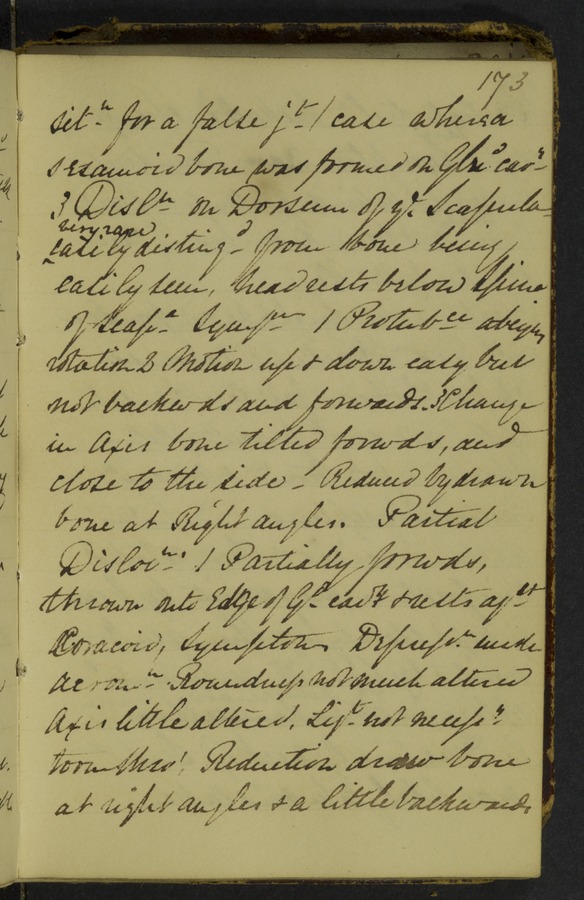 173
sitn for a false jt / case where a
sesamoid bone was formed on Gln'd cavy
3 Disln on Dorsum of ye Scapula
very rare
easily distingd from bone being
easily seen, head rests below Spine
of Scapa Sympm 1 Protubce
rotation 2 Motion up & down easy but
not backwds and forwards. 3 Change
in Axis bone tilted forwds, and
close to the side - Reduced by drawn
bone at Right angles. Partial
Dislocn: 1 Partially forwds,
thrown onto Edge of Gd cavy & rests agst
Coracoid, Symptom Depressn under
acromn Roundness not much altered
Axis little altered. Ligt not necessy
torn thro'. Reduction draw bone
at right angles & a little backwards